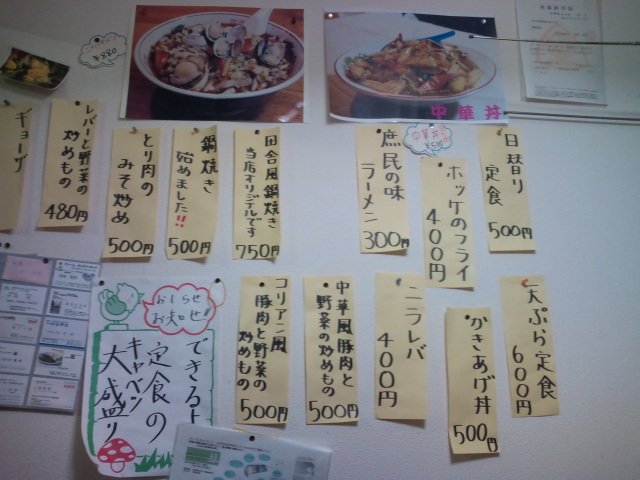 ¥880
中華丼
中華丼
日替り
定食
500円
ホッケのフライ
400円
庶民の味
ラーメン
300円
田舎風鍋焼き
当店オリジナルです
750円
鍋焼き
始めました!!
500円
とり肉の
みそ炒め
500円
レバーと野菜の
炒めもの
480円
ギョーザ
天ぷら定食
600円
かきあげ丼
500円
ニラレバ
400円
中華風豚肉と
野菜の炒めもの
500円
コリアン風
豚肉と野菜の
炒めもの
500円
おしらせ
お知らせ!!
できるよ
定食の
キャベツ
大盛り